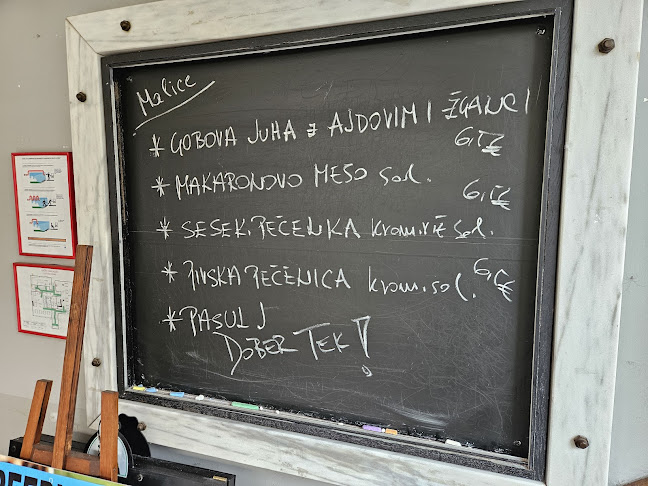 Malice
* GOBOVA JUHA Z AJDOVIMI ŽGANCI
6,12€
* MAKARONOVO MESO sol.
6,12€
* SESEK. PEČENKA krom. riž sol.
* PIVSKA PEČENICA krom. sol.
* PASULJ
DOBER TEK!